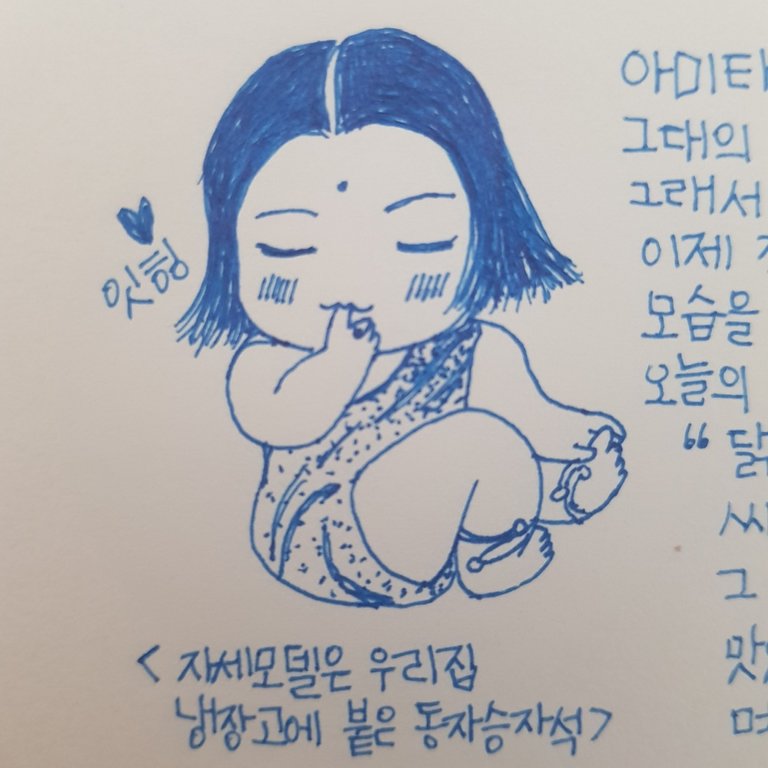 잇힝
아미타
그대의
그래서
이제
모습을
오늘의
“ 닭
그
맛
< 자세모델은 우리집
냉장고에 붙은 동자승자석>